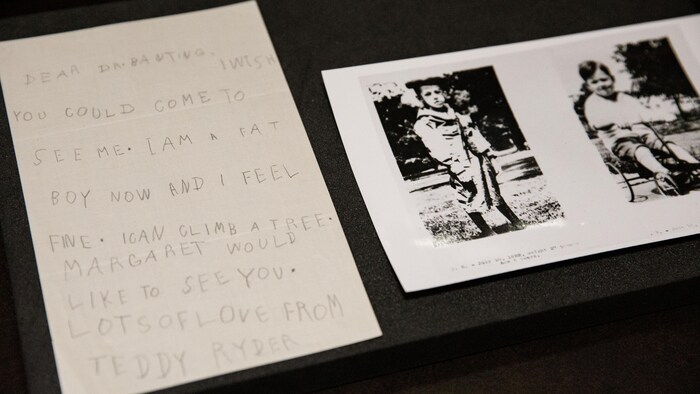 DEAR DR. BANTING. I WISH
YOU COULD COME TO
SEE ME. I AM A FAT
BOY NOW AND I FEEL
FINE. ICAN CLIMB A TREE.
MARGARET WOULD
LIKE TO SEE YOU.
LOTS OF LOVE FROM
TEDDY RYDER